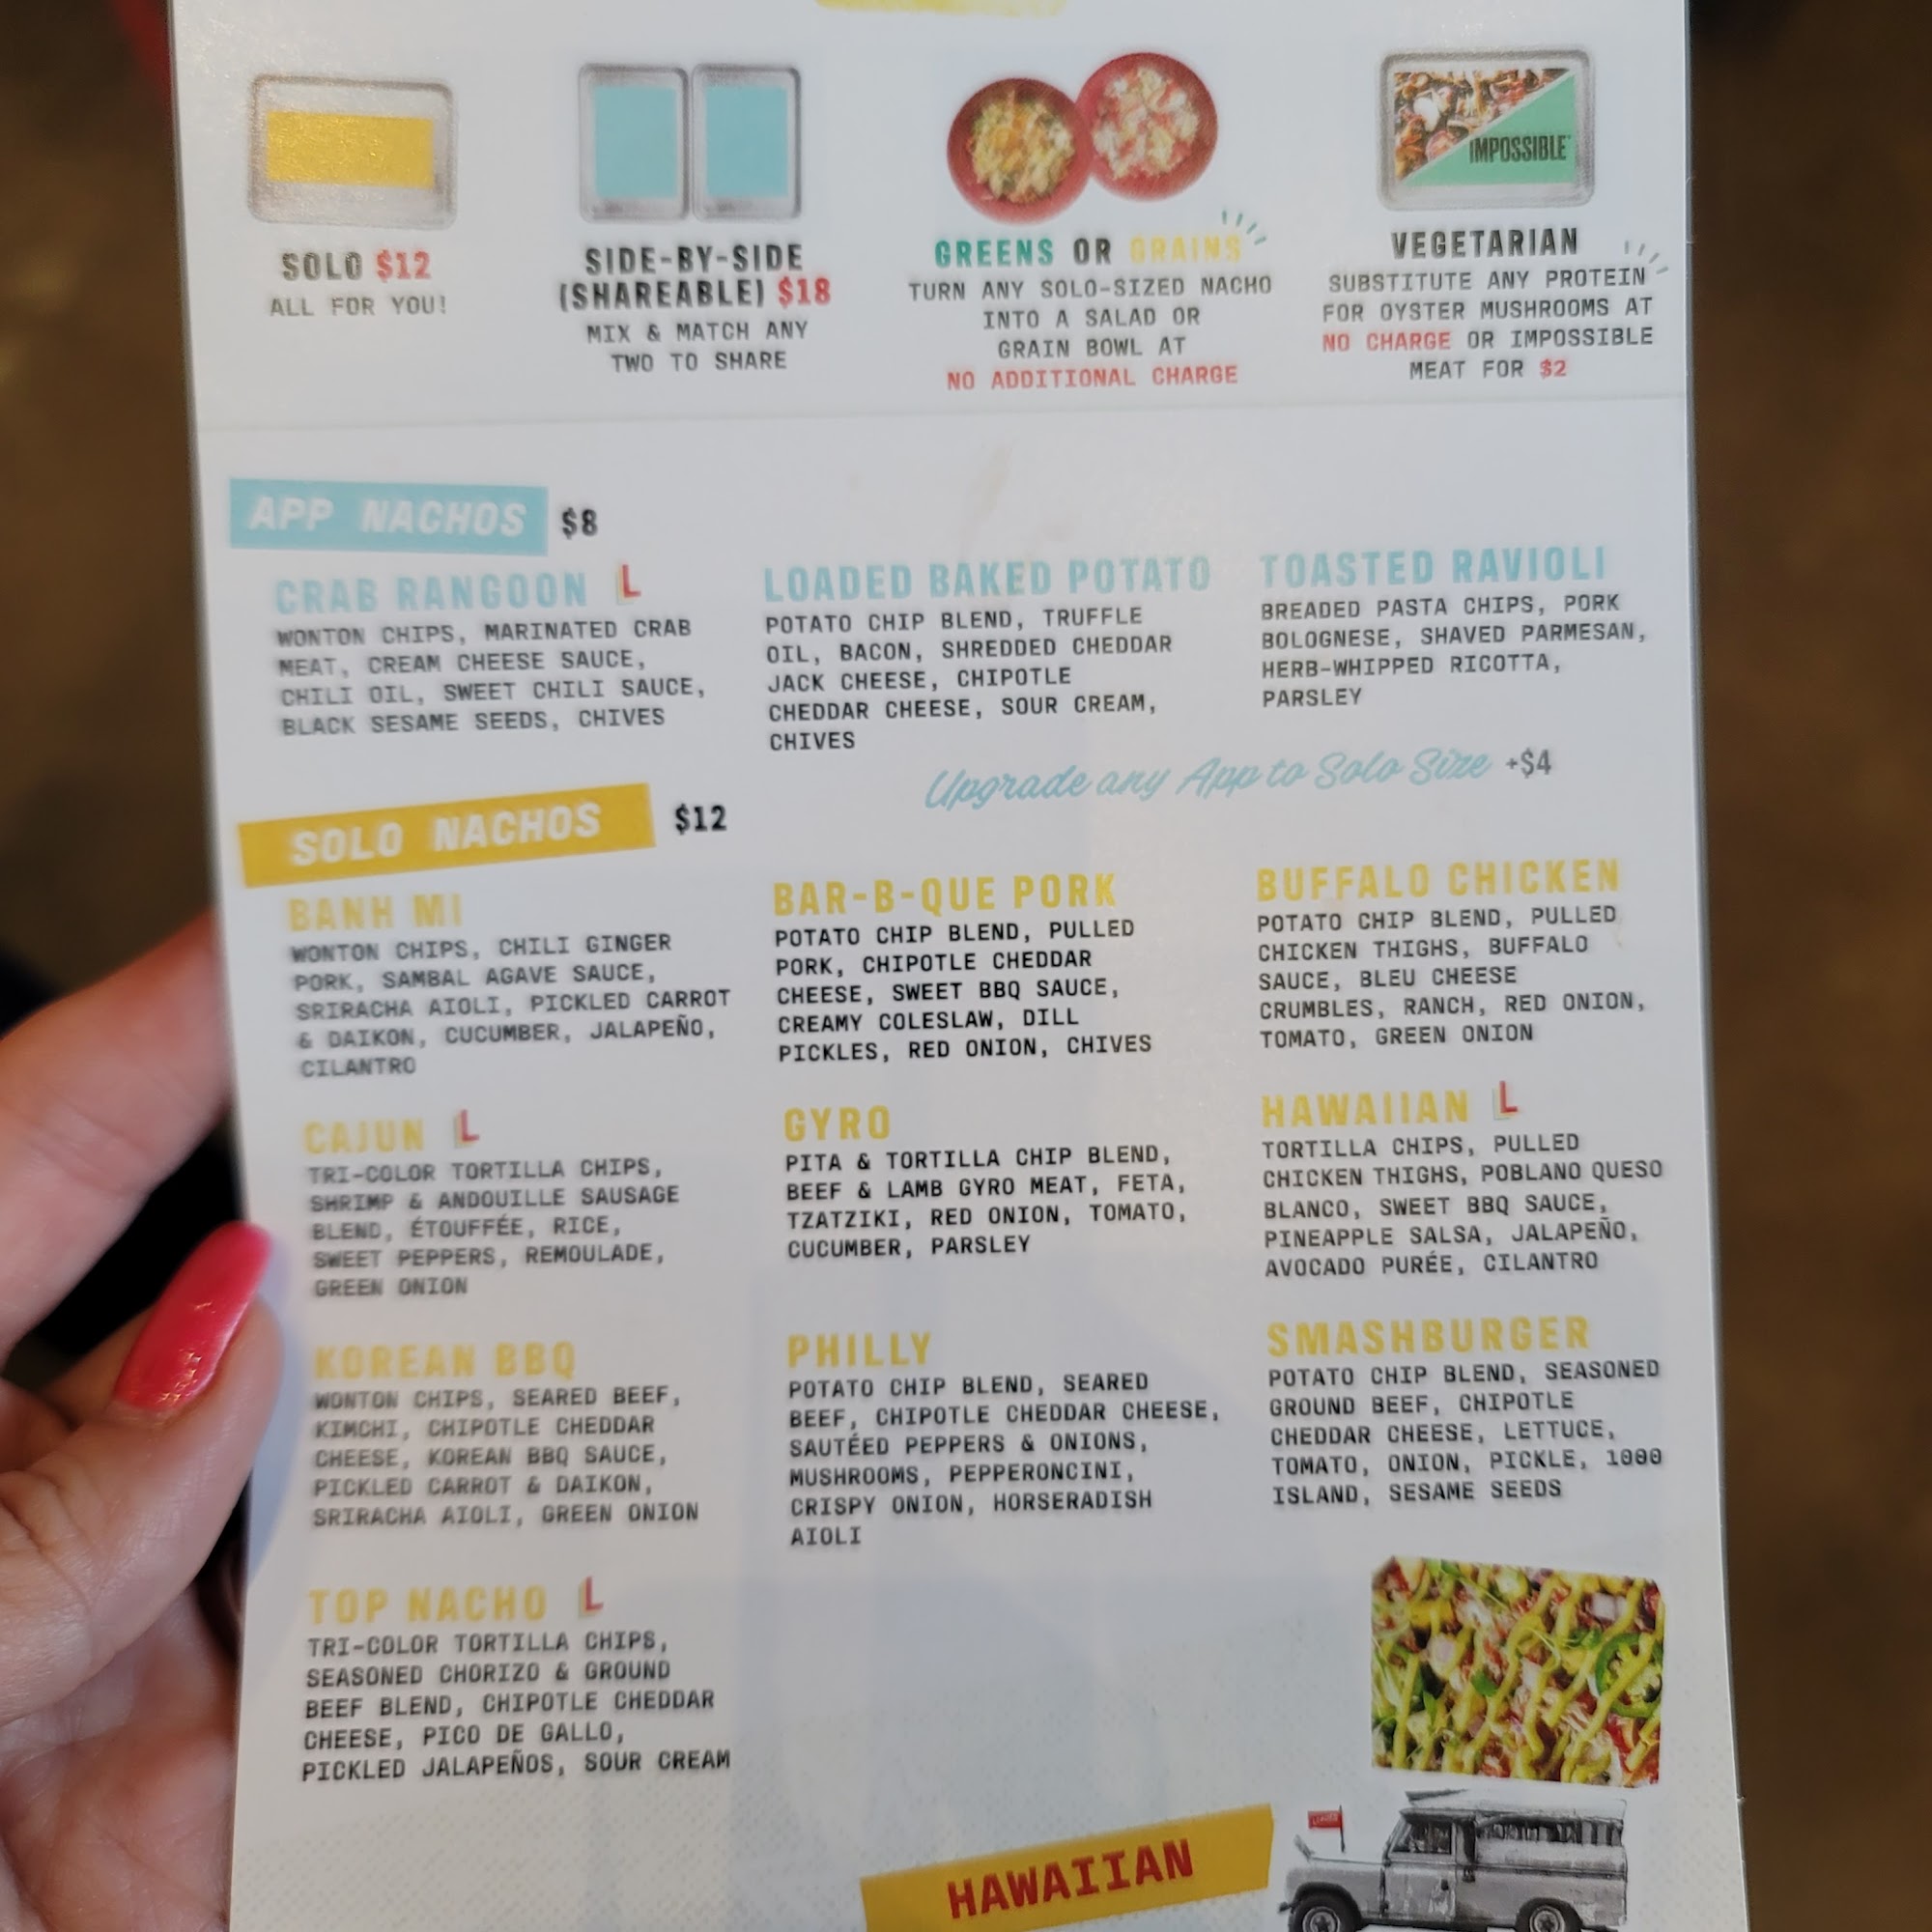 SOLO $12
ALL FOR YOU!
SIDE-BY-SIDE
(SHAREABLE) $18
MIX & MATCH ANY
TWO TO SHARE
GREENS OR GRAINS
TURN ANY SOLO-SIZED NACHO
INTO A SALAD OR
GRAIN BOWL AT
NO ADDITIONAL CHARGE
IMPOSSIBLE
VEGETARIAN
SUBSTITUTE ANY PROTEIN
FOR OYSTER MUSHROOMS AT
NO CHARGE OR IMPOSSIBLE
MEAT FOR $2
APP NACHOS $8
CRAB RANGOON L
WONTON CHIPS, MARINATED CRAB
MEAT, CREAM CHEESE SAUCE,
CHILI OIL, SWEET CHILI SAUCE,
BLACK SESAME SEEDS, CHIVES
LOADED BAKED POTATO
POTATO CHIP BLEND, TRUFFLE
OIL, BACON, SHREDDED CHEDDAR
JACK CHEESE, CHIPOTLE
CHEDDAR CHEESE, SOUR CREAM,
CHIVES
TOASTED RAVIOLI
BREADED PASTA CHIPS, PORK
BOLOGNESE, SHAVED PARMESAN,
HERB-WHIPPED RICOTTA,
PARSLEY
Upgrade any App to Solo Size +$4
SOLO NACHOS $12
BANH MI
WONTON CHIPS, CHILI GINGER
PORK, SAMBAL AGAVE SAUCE,
SRIRACHA AIOLI, PICKLED CARROT
& DAIKON, CUCUMBER, JALAPEÑO,
CILANTRO
BAR-B-QUE PORK
POTATO CHIP BLEND, PULLED
PORK, CHIPOTLE CHEDDAR
CHEESE, SWEET BBQ SAUCE,
CREAMY COLESLAW, DILL
PICKLES, RED ONION, CHIVES
BUFFALO CHICKEN
POTATO CHIP BLEND, PULLED
CHICKEN THIGHS, BUFFALO
SAUCE, BLEU CHEESE
CRUMBLES, RANCH, RED ONION,
TOMATO, GREEN ONION
CAJUN L
TRI-COLOR TORTILLA CHIPS,
SHRIMP & ANDOUILLE SAUSAGE
BLEND, ÉTOUFFÉE, RICE,
SWEET PEPPERS, REMOULADE,
GREEN ONION
GYRO
PITA & TORTILLA CHIP BLEND,
BEEF & LAMB GYRO MEAT, FETA,
TZATZIKI, RED ONION, TOMATO,
CUCUMBER, PARSLEY
HAWAIIAN L
TORTILLA CHIPS, PULLED
CHICKEN THIGHS, POBLANO QUESO
BLANCO, SWEET BBQ SAUCE,
PINEAPPLE SALSA, JALAPEÑO,
AVOCADO PURÉE, CILANTRO
KOREAN BBQ
WONTON CHIPS, SEARED BEEF,
KIMCHI, CHIPOTLE CHEDDAR
CHEESE, KOREAN BBQ SAUCE,
PICKLED CARROT & DAIKON,
SRIRACHA AIOLI, GREEN ONION
PHILLY
POTATO CHIP BLEND, SEARED
BEEF, CHIPOTLE CHEDDAR CHEESE,
SAUTÉED PEPPERS & ONIONS,
MUSHROOMS, PEPPERONCINI,
CRISPY ONION, HORSERADISH
AIOLI
SMASHBURGER
POTATO CHIP BLEND, SEASONED
GROUND BEEF, CHIPOTLE
CHEDDAR CHEESE, LETTUCE,
TOMATO, ONION, PICKLE, 1000
ISLAND, SESAME SEEDS
TOP NACHO L
TRI-COLOR TORTILLA CHIPS,
SEASONED CHORIZO & GROUND
BEEF BLEND, CHIPOTLE CHEDDAR
CHEESE, PICO DE GALLO,
PICKLED JALAPEÑOS, SOUR CREAM
HAWAIIAN